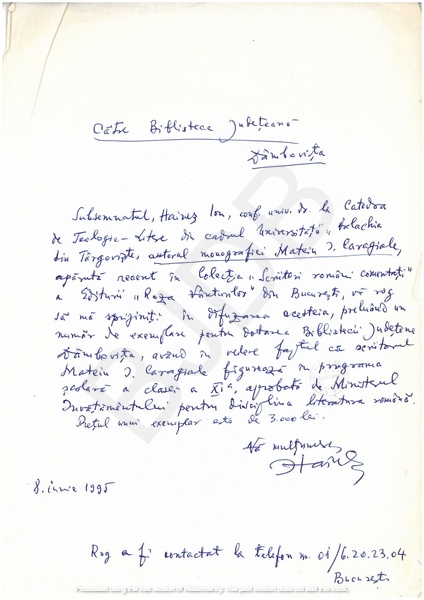 Către Biblioteca Județeană
Dâmbovița
Subsemnatul, Haineș Ion, conf. univ. dr. la Catedra
de Teologie-Litere din cadrul Universității „Valachia"
din Târgoviște, autorul monografiei Mateiu I. Caragiale,
apărută recent în Colecția „Scriitori români comentați"
a Editurii „Roza Vânturilor" din București, vă rog
să mă sprijiniți în difuzarea acesteia, preluând un
număr de exemplare pentru dotarea Bibliotecii Județene
Dâmbovița, având în vedere faptul că scriitorul
Mateiu I. Caragiale figurează în programa
școlară a clasei a XIª, aprobată de Ministerul
Învățământului pentru disciplina literatura română.
Prețul unui exemplar este de 3.000 lei.
Vă mulțumesc,
8. iunie 1995
Rog a fi contactat la telefon nr. 01/6.20.23.04
București